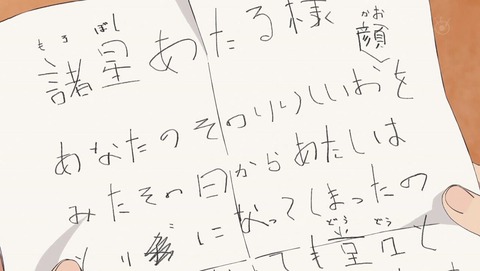 もろぼし
諸星あたる様
かお
顔
あなたのそのりりしいおを
みたその日からあたしは
になってしまったの
どう どう
ても